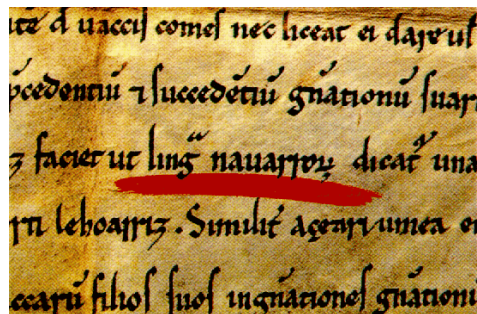 de uaccis comes nec liceat ei dare uł
p̄cedentiū ⁊ succedētiū gn̄ationū suar
faciet ut lingᵃ̄ nauarroꝝ dicat᷑ una
lehoarriz. Similit̄ açeari umea
ccarū filios suos in gn̄ationes gn̄ationi